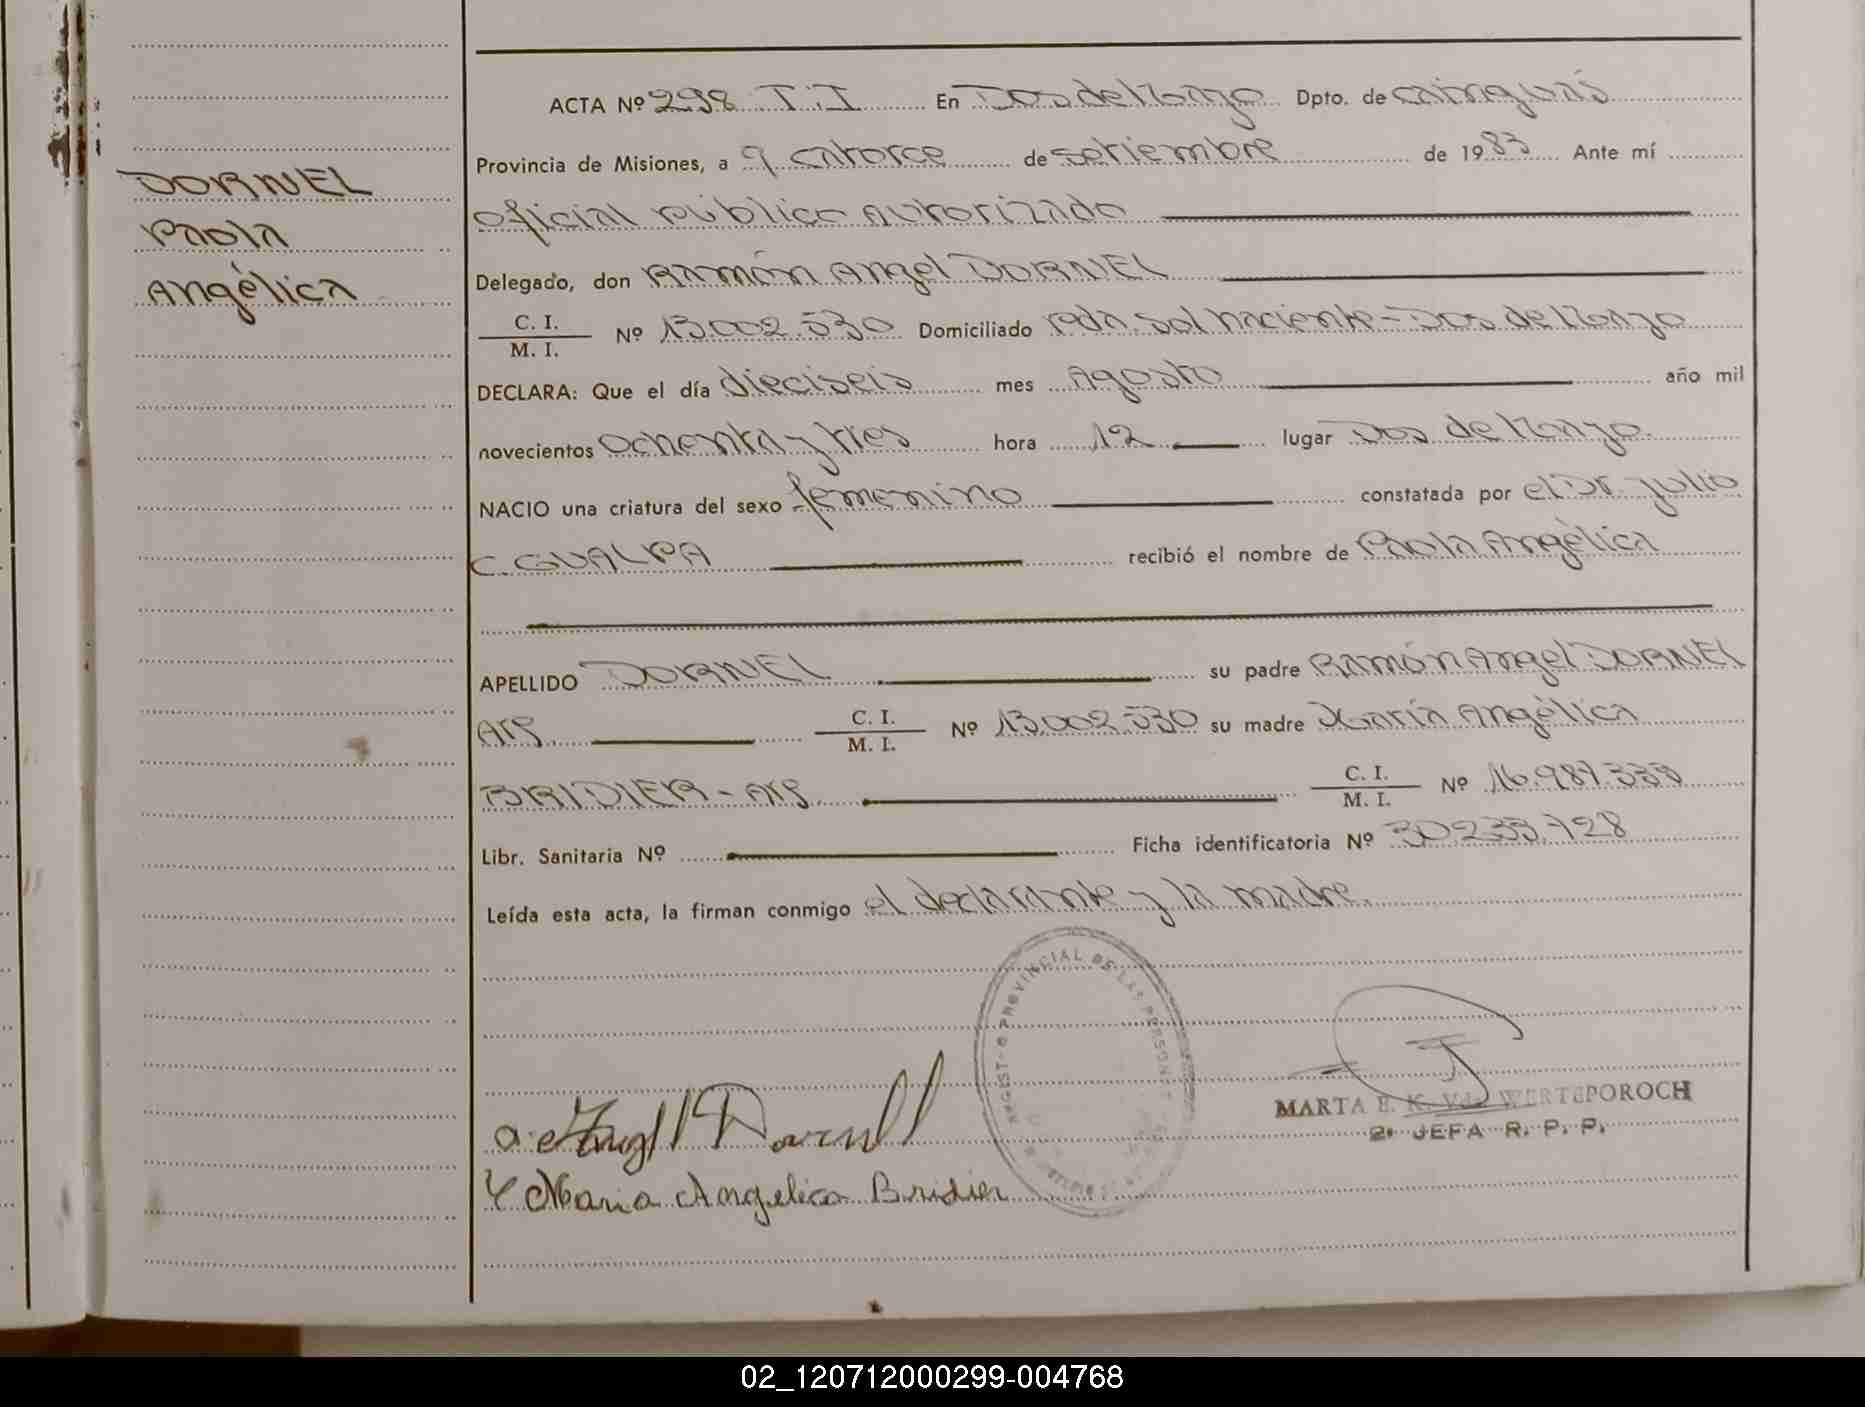 DORNEL
Paola
Angélica
ACTA Nº 298 T.I En Dos de Mayo Dpto. de Cainguás
Provincia de Misiones, a 9 catorce de setiembre de 1983 Ante mí
oficial público autorizado
Delegado, don Ramón Angel DORNEL
C. I.
M. I. Nº 13.002.530 Domiciliado Pda. Sol Naciente - Dos de Mayo
DECLARA: Que el día dieciseis mes Agosto año mil
novecientos ochenta y tres hora 12 lugar Dos de Mayo.
NACIO una criatura del sexo femenino constatada por el Dr. Julio
C. GUALPA recibió el nombre de Paola Angélica
APELLIDO DORNEL su padre Ramón Angel DORNEL
Arg. C. I.
M. I. Nº 13.002.530 su madre María Angélica
BRIDIER - Arg. C. I.
M. I. Nº 16.987.333
Libr. Sanitaria Nº Ficha identificatoria Nº 30.233.728
Leída esta acta, la firman conmigo el declarante y la madre.
PROVINCIAL DE LAS PERSON
Dornell
Maria Angelica Bridier
MARTA E. K. Vda WERTEPOROCH
2ª JEFA R. P. P.
02_120712000299-004768